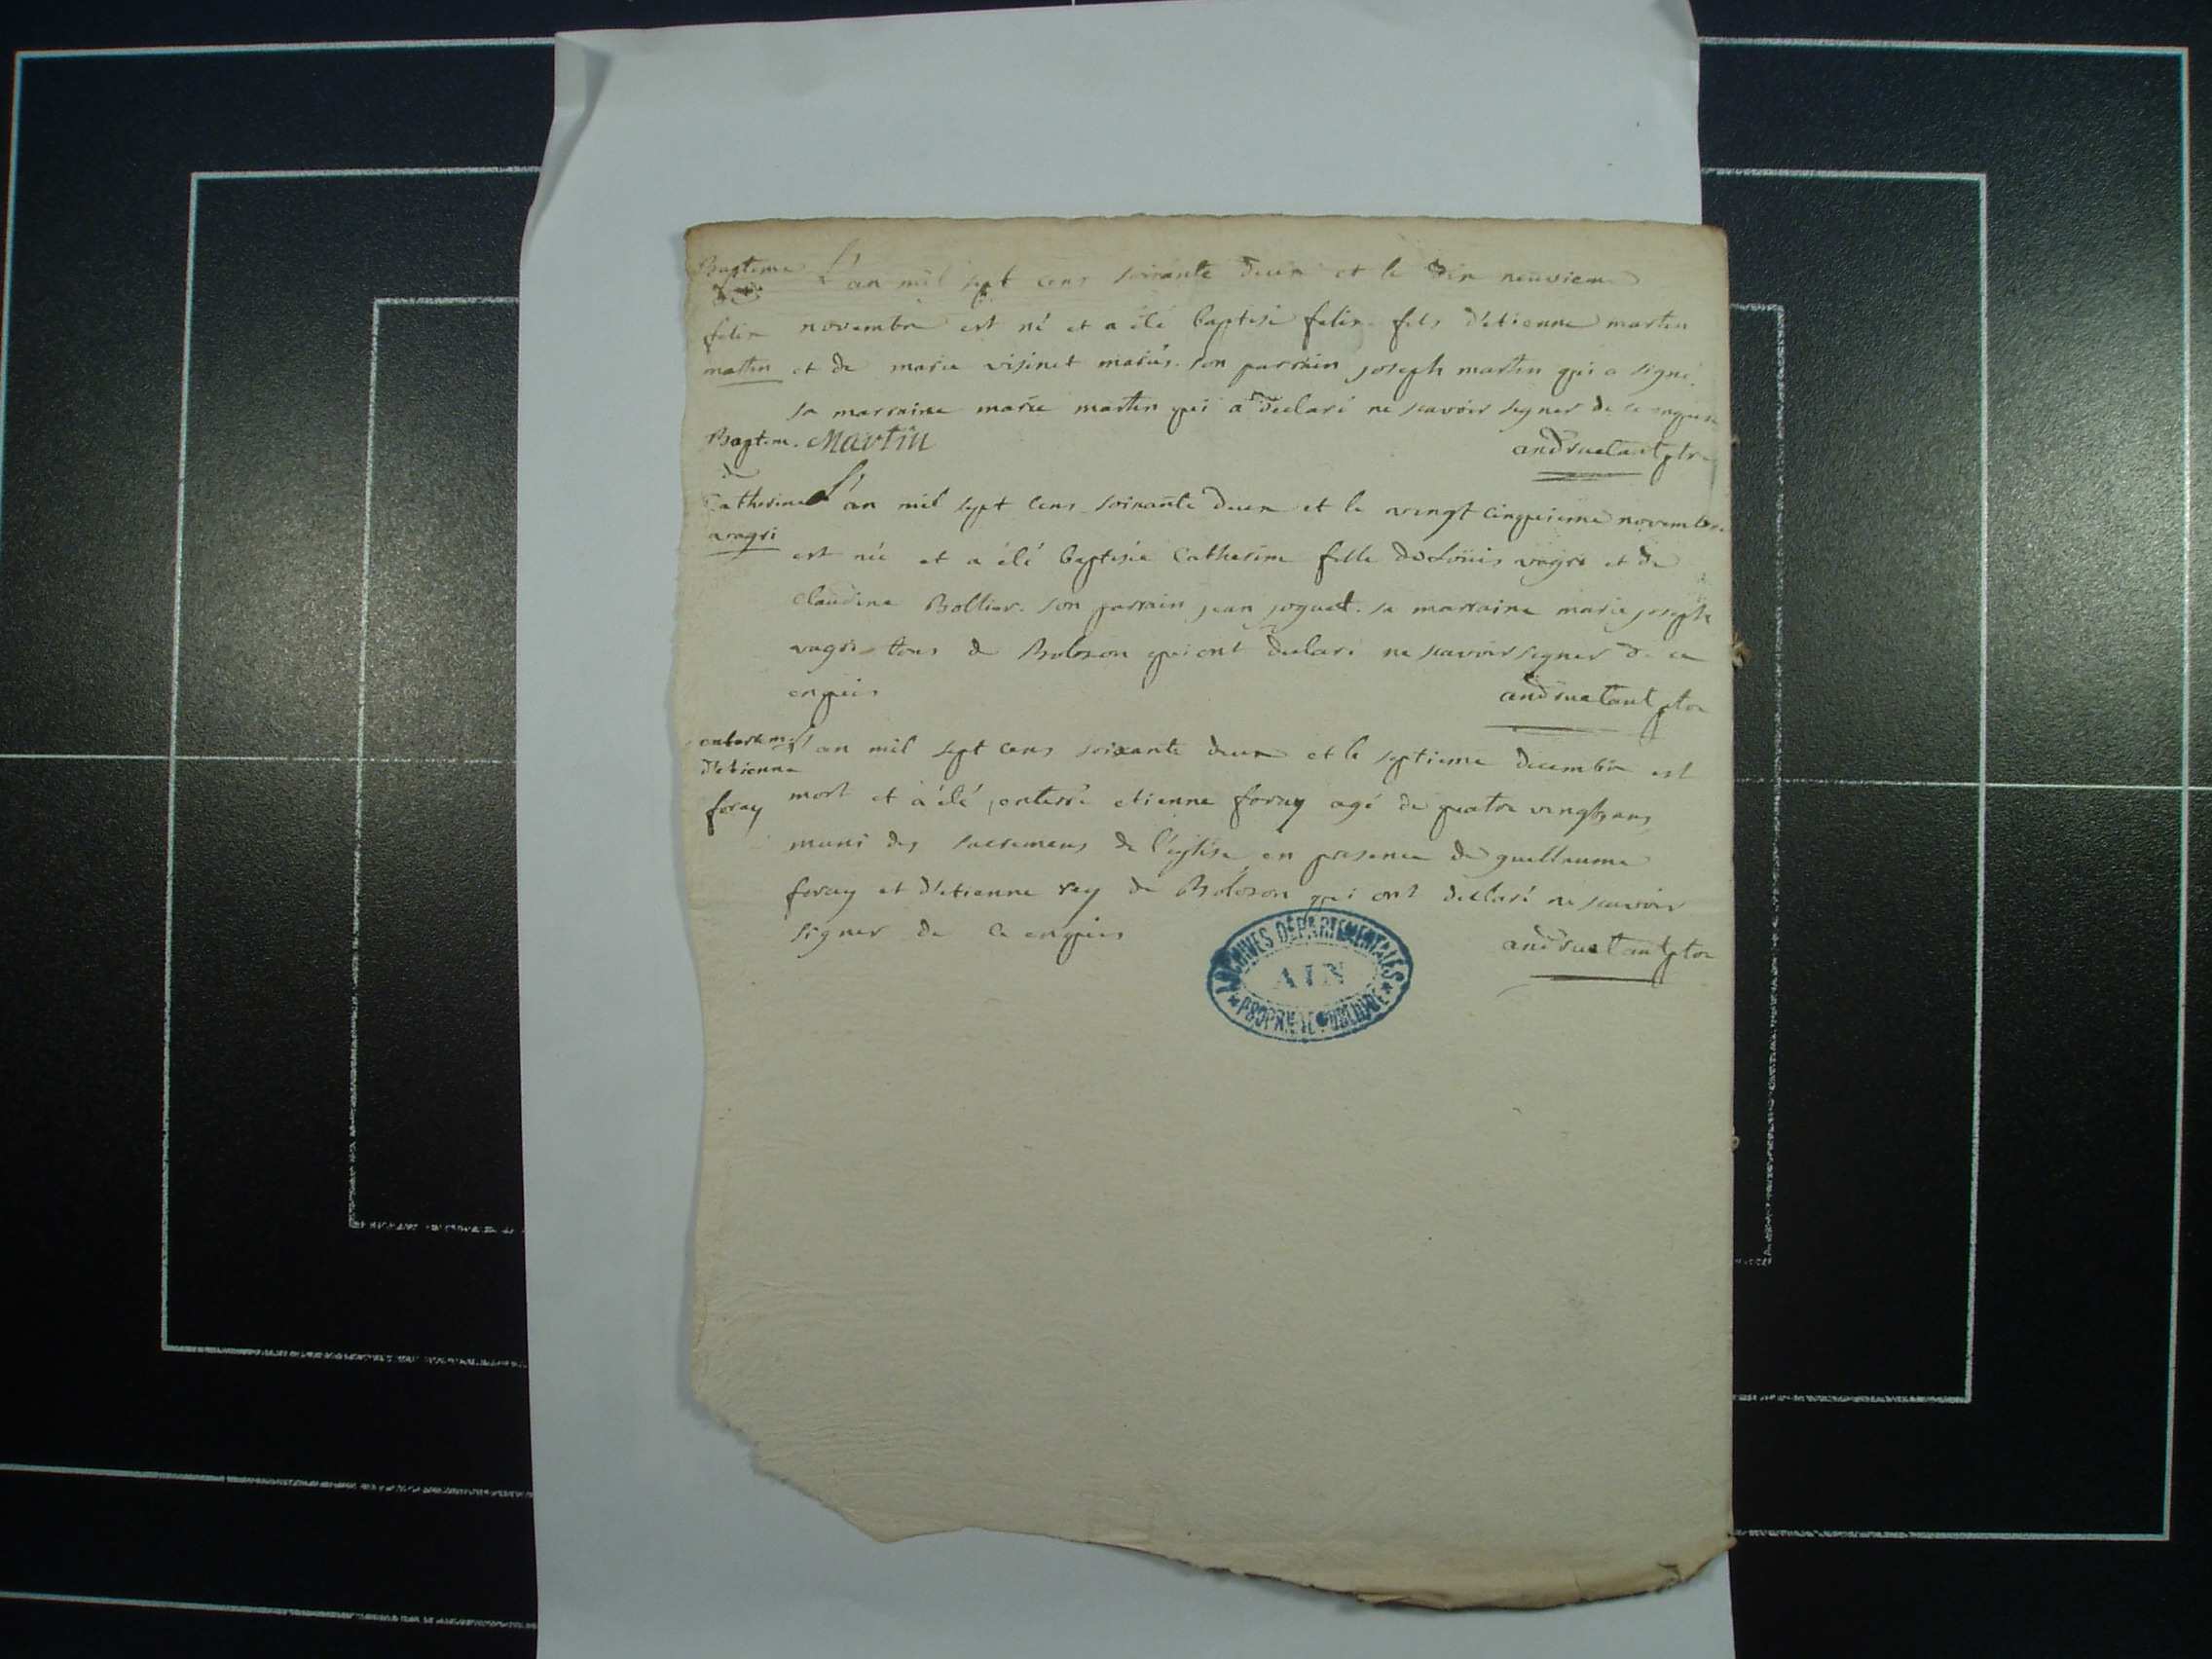 Bapteme L'an mil sept cens soixante deux et le dix neuvieme
de
felix novembre est né et a été baptisé felix fils d'etienne martin
martin et de marie visinet mariés. son parrain joseph martin qui a signé.
sa marraine marie martin qui a declaré ne scavoir signer de ce enquise
Baptem. Martin andruetant ptre
de
Catherine L'an mil sept cens soixante deux et le vingt cinquieme novembre
vagri est née et a été baptisée Catherine fille de Loüis vagri et de
claudine Bollier. son parrain jean joguet. sa marraine marie joseph
vagri tous de Bolozon qui ont declaré ne scavoir signer de ce
enquis andruetant ptre
enterrem. L'an mil sept cens soixante deux et le septieme decembre est
d'etienne
foray mort et a été enterré etienne foray agé de quatre vingts ans
muni des sacremens de l'eglise en presence de guillaume
foray et d'etienne rey de Bolozon qui ont declaré ne scavoir
signer de ce enquis andruetant ptre
ARCHIVES DÉPARTEMENTALES
AIN
PROPRIÉTÉ PUBLIQUE